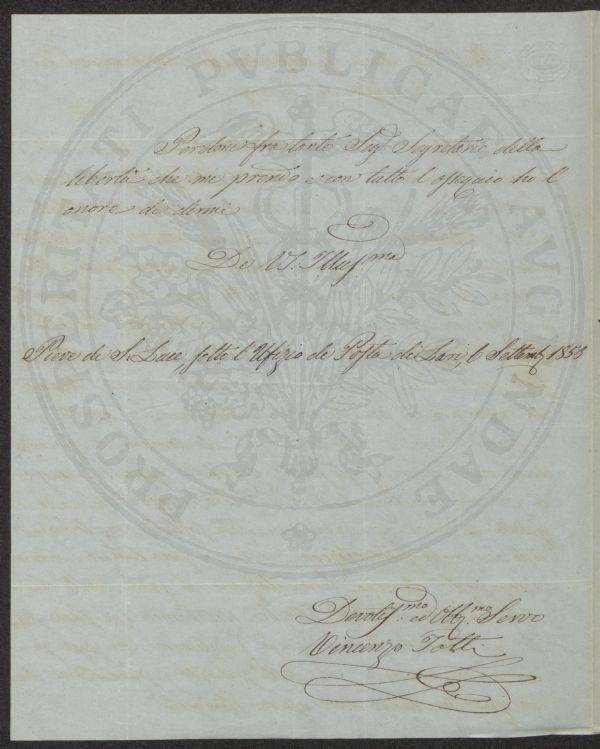 PROSPERITATI PVBLICAE AVGENDAE
Perdoni fra tanto Sig.r Segretario della
libertà che mi prendo e con tutto l'ossequio ho l'
onore di dirmi
De VS. Illus.ma
Pieve di S. Luce, sotto l'Ufizio di Posta di Lari, 6 Settemb. 1853
Devotis.mo ed Obb.mo Servo
Vincenzo Totti